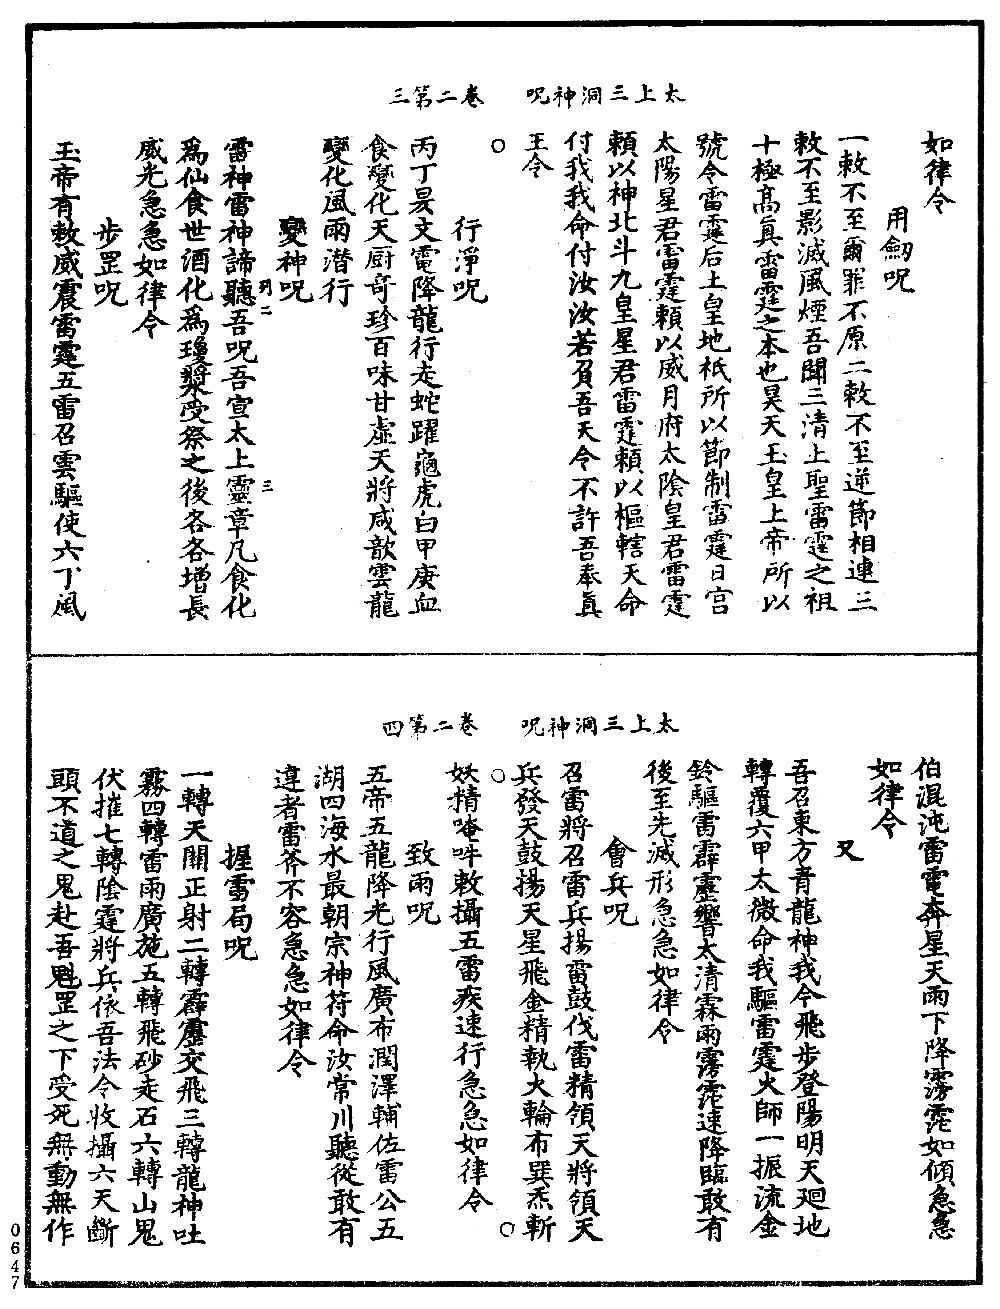 太上三洞神呪　卷二第三
如律令
用劔呪
一敕不至爾罪不原二敕不至逆節相連三
敕不至影滅風煙吾聞三清上聖雷霆之祖
十極高眞雷霆之本也昊天玉皇上帝所以
號令雷霆后土皇地祇所以節制雷霆日宮
太陽星君雷霆賴以威月府太陰皇君雷霆
賴以神北斗九皇星君雷霆賴以樞轄天命
付我我命付汝汝若負吾天令不許吾奉眞
王令
○
行淨呪
丙丁昃文電降龍行走蛇躍龜虎白甲庚血
食變化天厨奇珍百味甘虛天將咸歆雲龍
變化風雨潜行
變神呪
列二　三
雷神雷神諦聽吾呪吾宣太上靈章凡食化
爲仙食世酒化爲瓊漿受祭之後各各增長
威光急急如律令
步罡呪
玉帝有敕威震雷霆五雷召雲驅使六丁風
太上三洞神呪　卷二第四
伯混沌雷電奔星天雨下降霶霈如傾急急
如律令
又
吾召東方青龍神我今飛步登陽明天廻地
轉覆六甲太微命我驅雷霆火師一振流金
鈴驅雷霹靂響太清霖雨霶霈速降臨敢有
後至先滅形急急如律令
會兵呪
召雷將召雷兵揚雷鼓伐雷精領天將領天
兵發天鼓揚天星飛金精執火輪布巽炁斬
○　○
妖精唵吽敕攝五雷疾速行急急如律令
致雨呪
五帝五龍降光行風廣布潤澤輔佐雷公五
湖四海水最朝宗神符命汝常川聽從敢有
違者雷斧不容急急如律令
握雷局呪
一轉天關正射二轉霹靂交飛三轉龍神吐
霧四轉雷雨廣施五轉飛砂走石六轉山鬼
伏摧七轉陰霆將兵依吾法令收攝六天斷
頭不道之鬼赴吾魁罡之下受死無動無作
0647